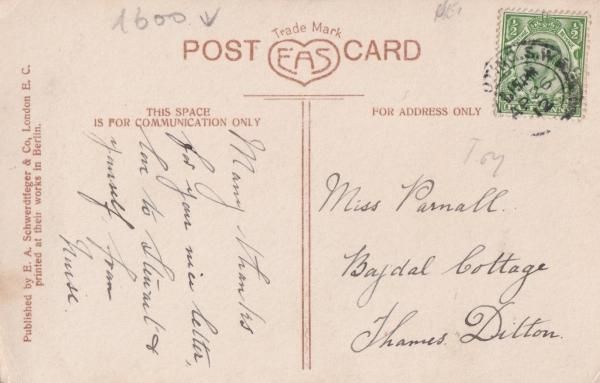 1600.
Trade Mark
POST CARD
EAS
THIS SPACE
IS FOR COMMUNICATION ONLY
FOR ADDRESS ONLY
Published by E. A. Schwerdtfeger & Co., London E. C.
printed at their works in Berlin.
Many thanks
for your nice letter,
love to Stewart &
yourself from
Nurse.
Toy
Miss Parnall.
Bajdal Cottage
Thames Ditton.
½ ½